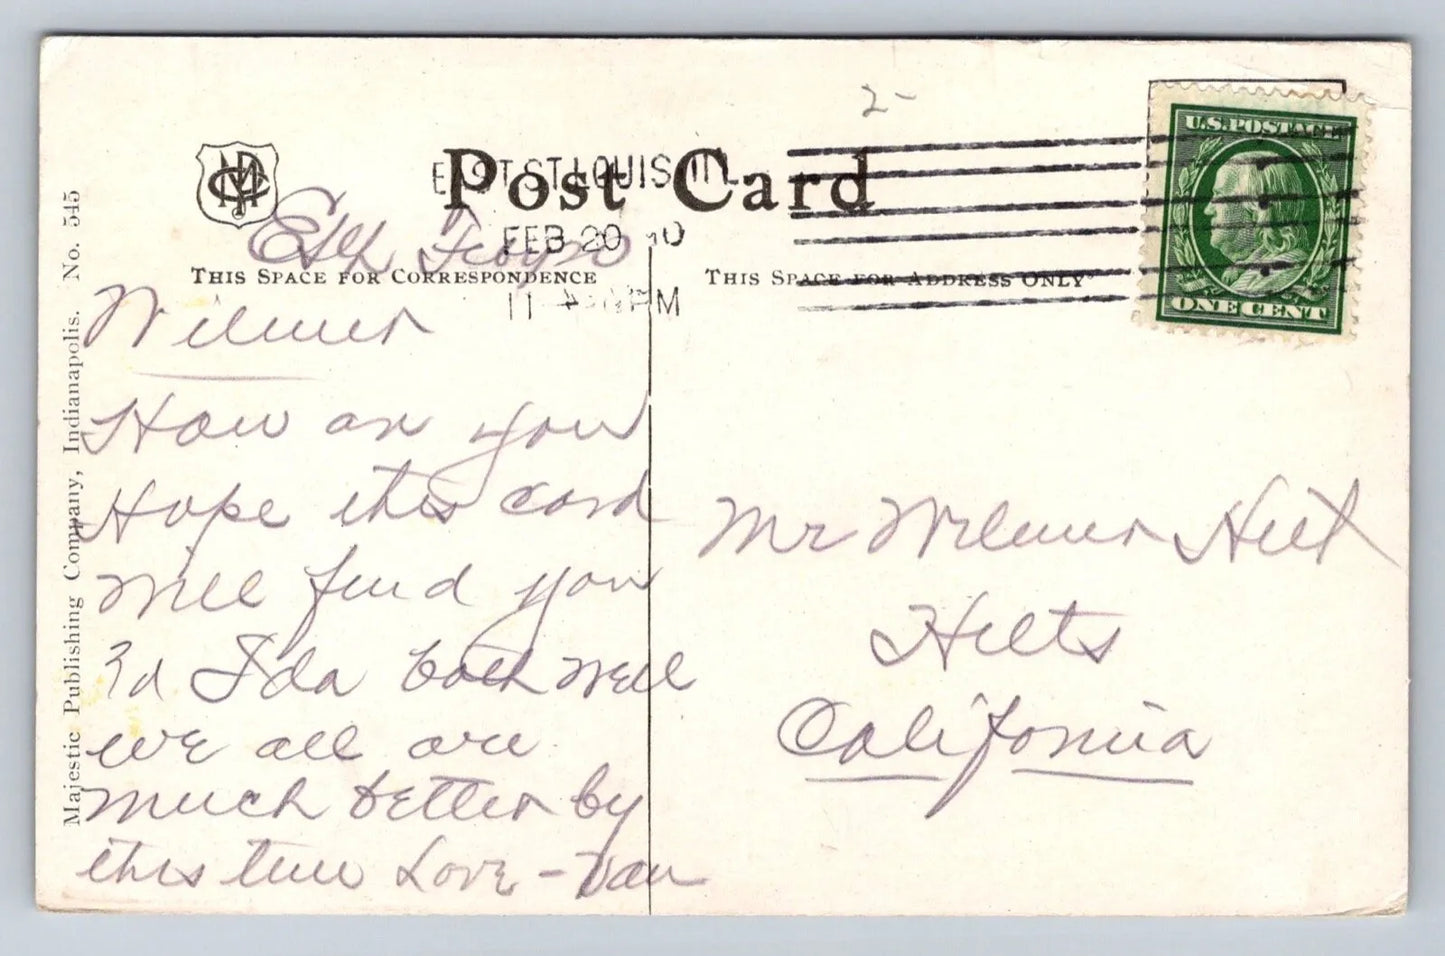 2-
U.S. POSTAGE
Post Card
EAST ST. LOUIS, ILL.
FEB 20
11 PM
ONE CENT
THIS SPACE FOR CORRESPONDENCE
THIS SPACE FOR ADDRESS ONLY
Majestic Publishing Company, Indianapolis. No. 545
Wilmer
How are you
Hope this card
will find you
Ida both well
we all are
much better by
this time Love - Van
Mr Wilmer Hilt
Hilts
California